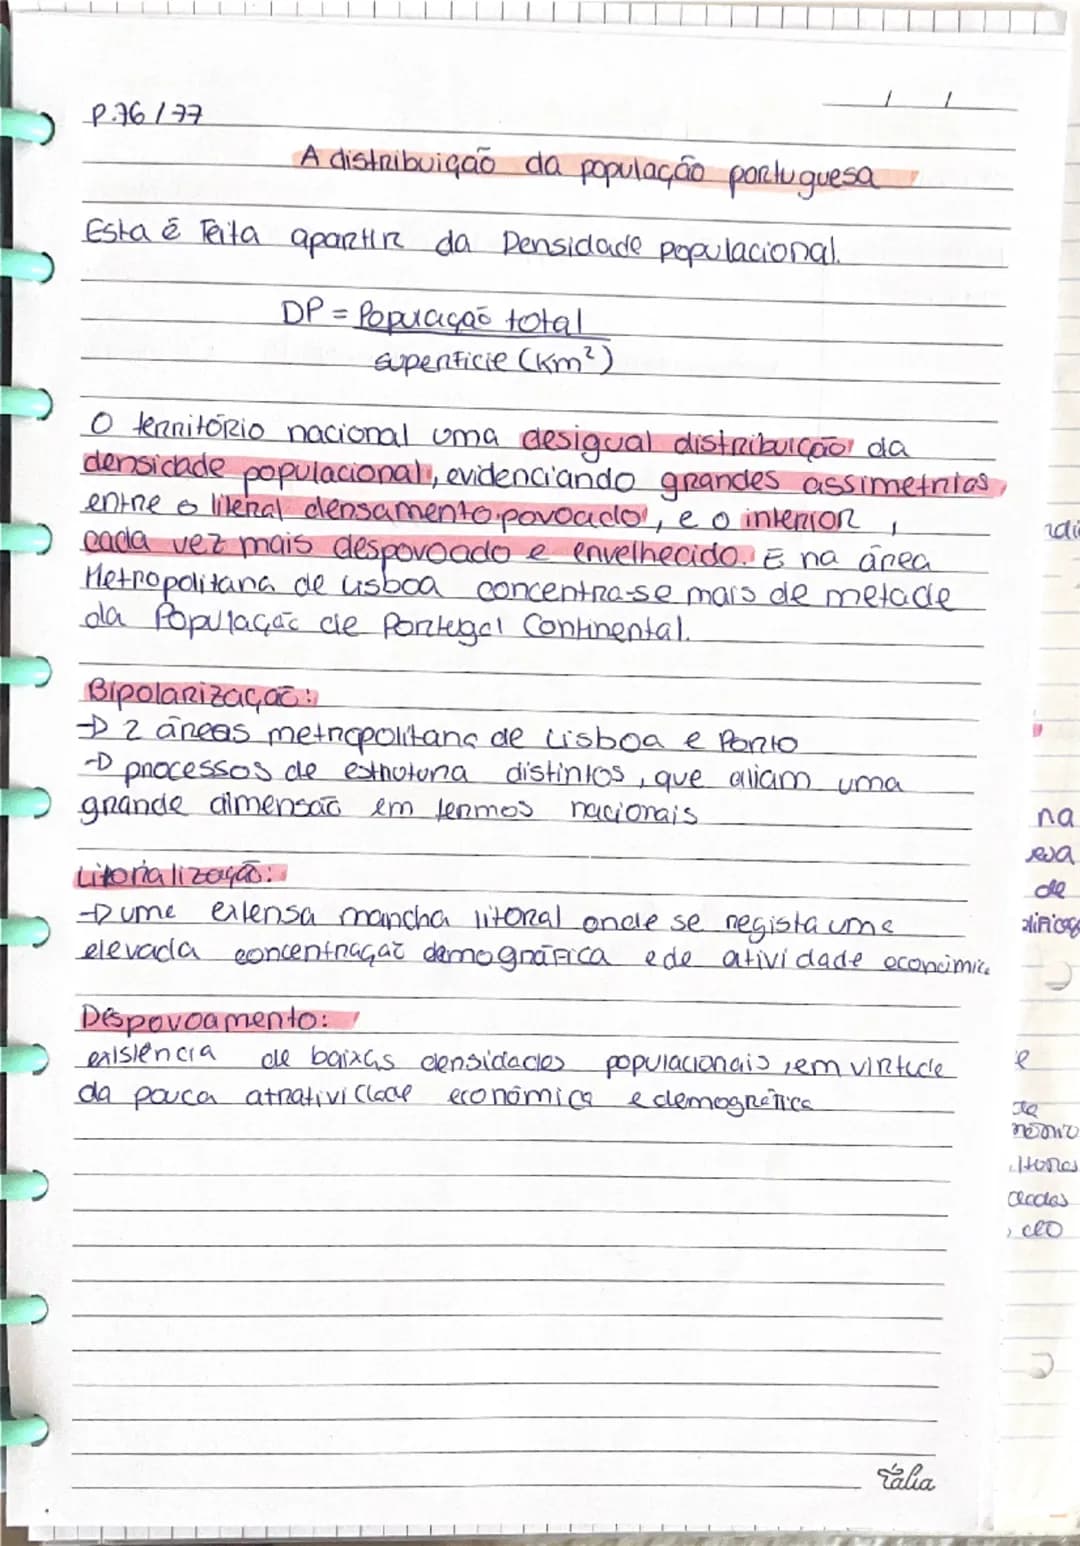 P.76/77
/ /
A distribuição da população portuguesa
Esta é feita apartir da Densidade populacional.
DP = População total
superfície (Km²)
O território nacional uma desigual distribuição da
densidade populacional, evidenciando grandes assimetrias,
entre o literal densamento povoado, e o interior,
cada vez mais despovoado e envelhecido. E na área
Metropolitana de Lisboa concentra-se mais de metade
da População de Portugal Continental.
Bipolarização:
→ 2 áreas metropolitana de Lisboa e Porto
→ processos de estrotura distintos, que aliam uma
grande dimensão em termos nacionais
Litorialização:
→ uma extensa mancha litoral onde se regista uma
elevada concentração demográfica e de atividade económica
Despovoamento:
existência de baixas densidades populacionais, em virtude
da pouca atratividade económica e demográfica
Tália
na
de
e